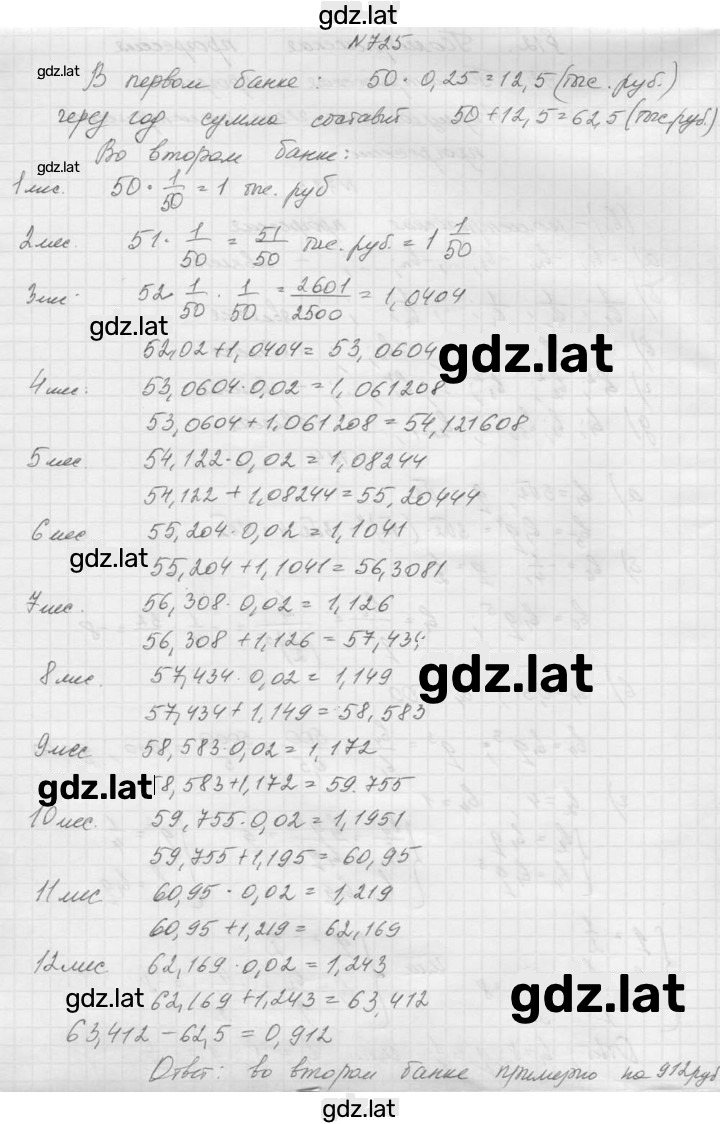 gdz.lat
N 725
gdz.lat В первом банке: 50 · 0,25 = 12,5 (тыс. руб.)
через год сумма составит 50 + 12,5 = 62,5 (тыс. руб.)
gdz.lat Во втором банке:
1 мес. 50 · 1/50 = 1 тыс. руб
2 мес. 51 · 1/50 = 51/50 тыс. руб. = 1 1/50
3 мес 52 1/50 · 1/50 = 2601/2500 = 1,0404
gdz.lat
52,02 + 1,0404 = 53,0604
gdz.lat
4 мес: 53,0604 · 0,02 = 1,061208
53,0604 + 1,061208 = 54,121608
5 мес 54,122 · 0,02 = 1,08244
54,122 + 1,08244 = 55,20444
6 мес 55,204 · 0,02 = 1,1041
gdz.lat 55,204 + 1,1041 = 56,3081
7 мес. 56,308 · 0,02 = 1,126
56,308 + 1,126 = 57,434
8 мес. 57,434 · 0,02 = 1,149
gdz.lat
57,434 + 1,149 = 58,583
9 мес 58,583 · 0,02 = 1,172
gdz.lat 58,583 + 1,172 = 59.755
10 мес. 59,755 · 0,02 = 1,1951
59,755 + 1,195 = 60,95
11 мес 60,95 · 0,02 = 1,219
60,95 + 1,219 = 62,169
12 мес 62,169 · 0,02 = 1,243
gdz.lat 62,169 + 1,243 = 63,412
gdz.lat
63,412 - 62,5 = 0,912
Ответ: во втором банке примерно на 912 руб
gdz.lat